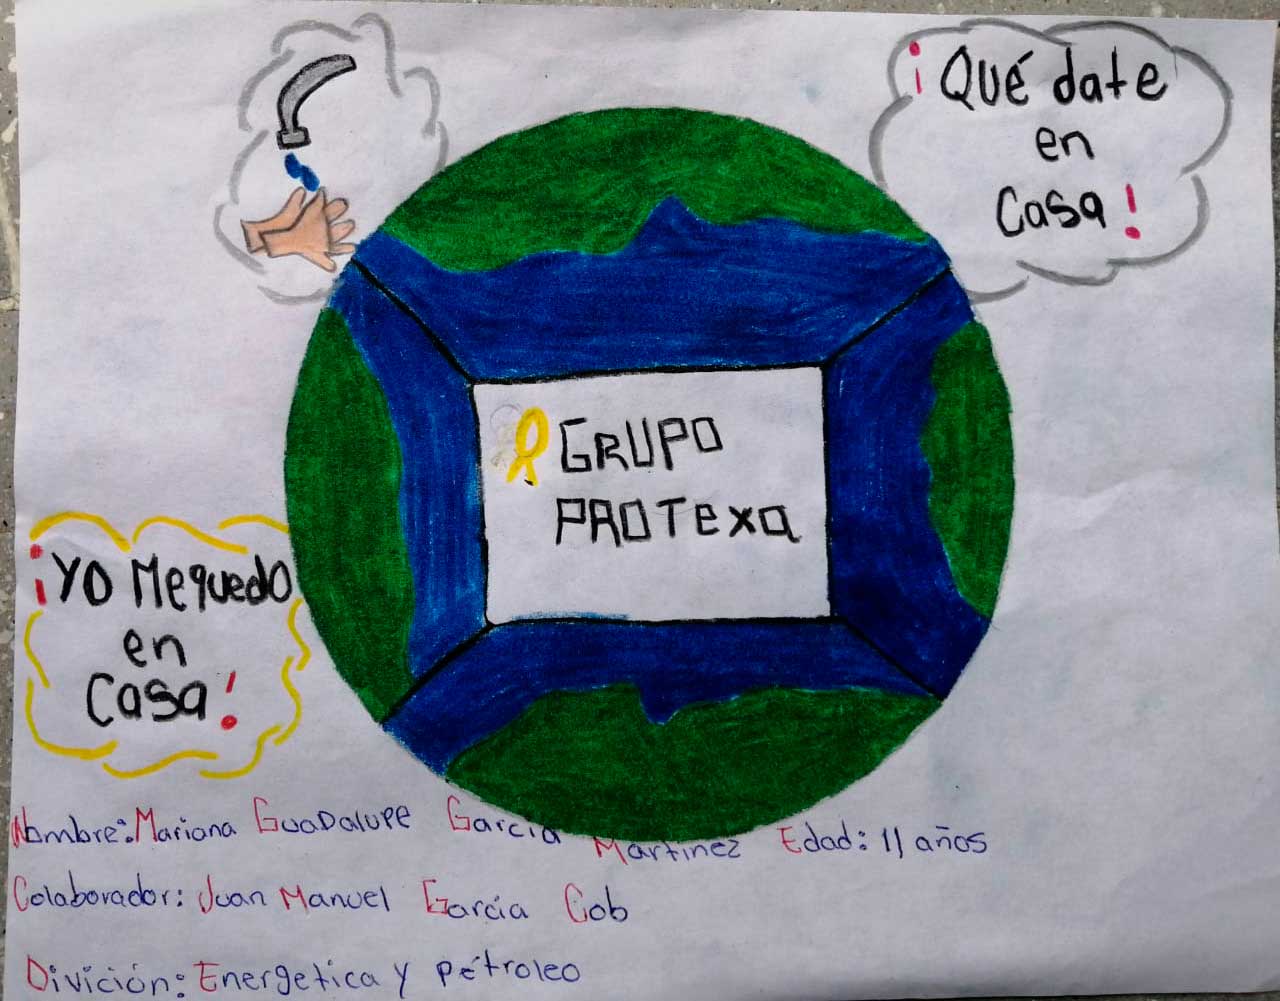 ¡Qué date
en
Casa!
GRUPO
PROTexa
¡YO Me quedo
en
Casa!
Nombre: Mariana GuaDalupe García Martínez Edad: 11 años
Colaborador: Juan Manuel García Cob
Divición: Energetica y pétroleo